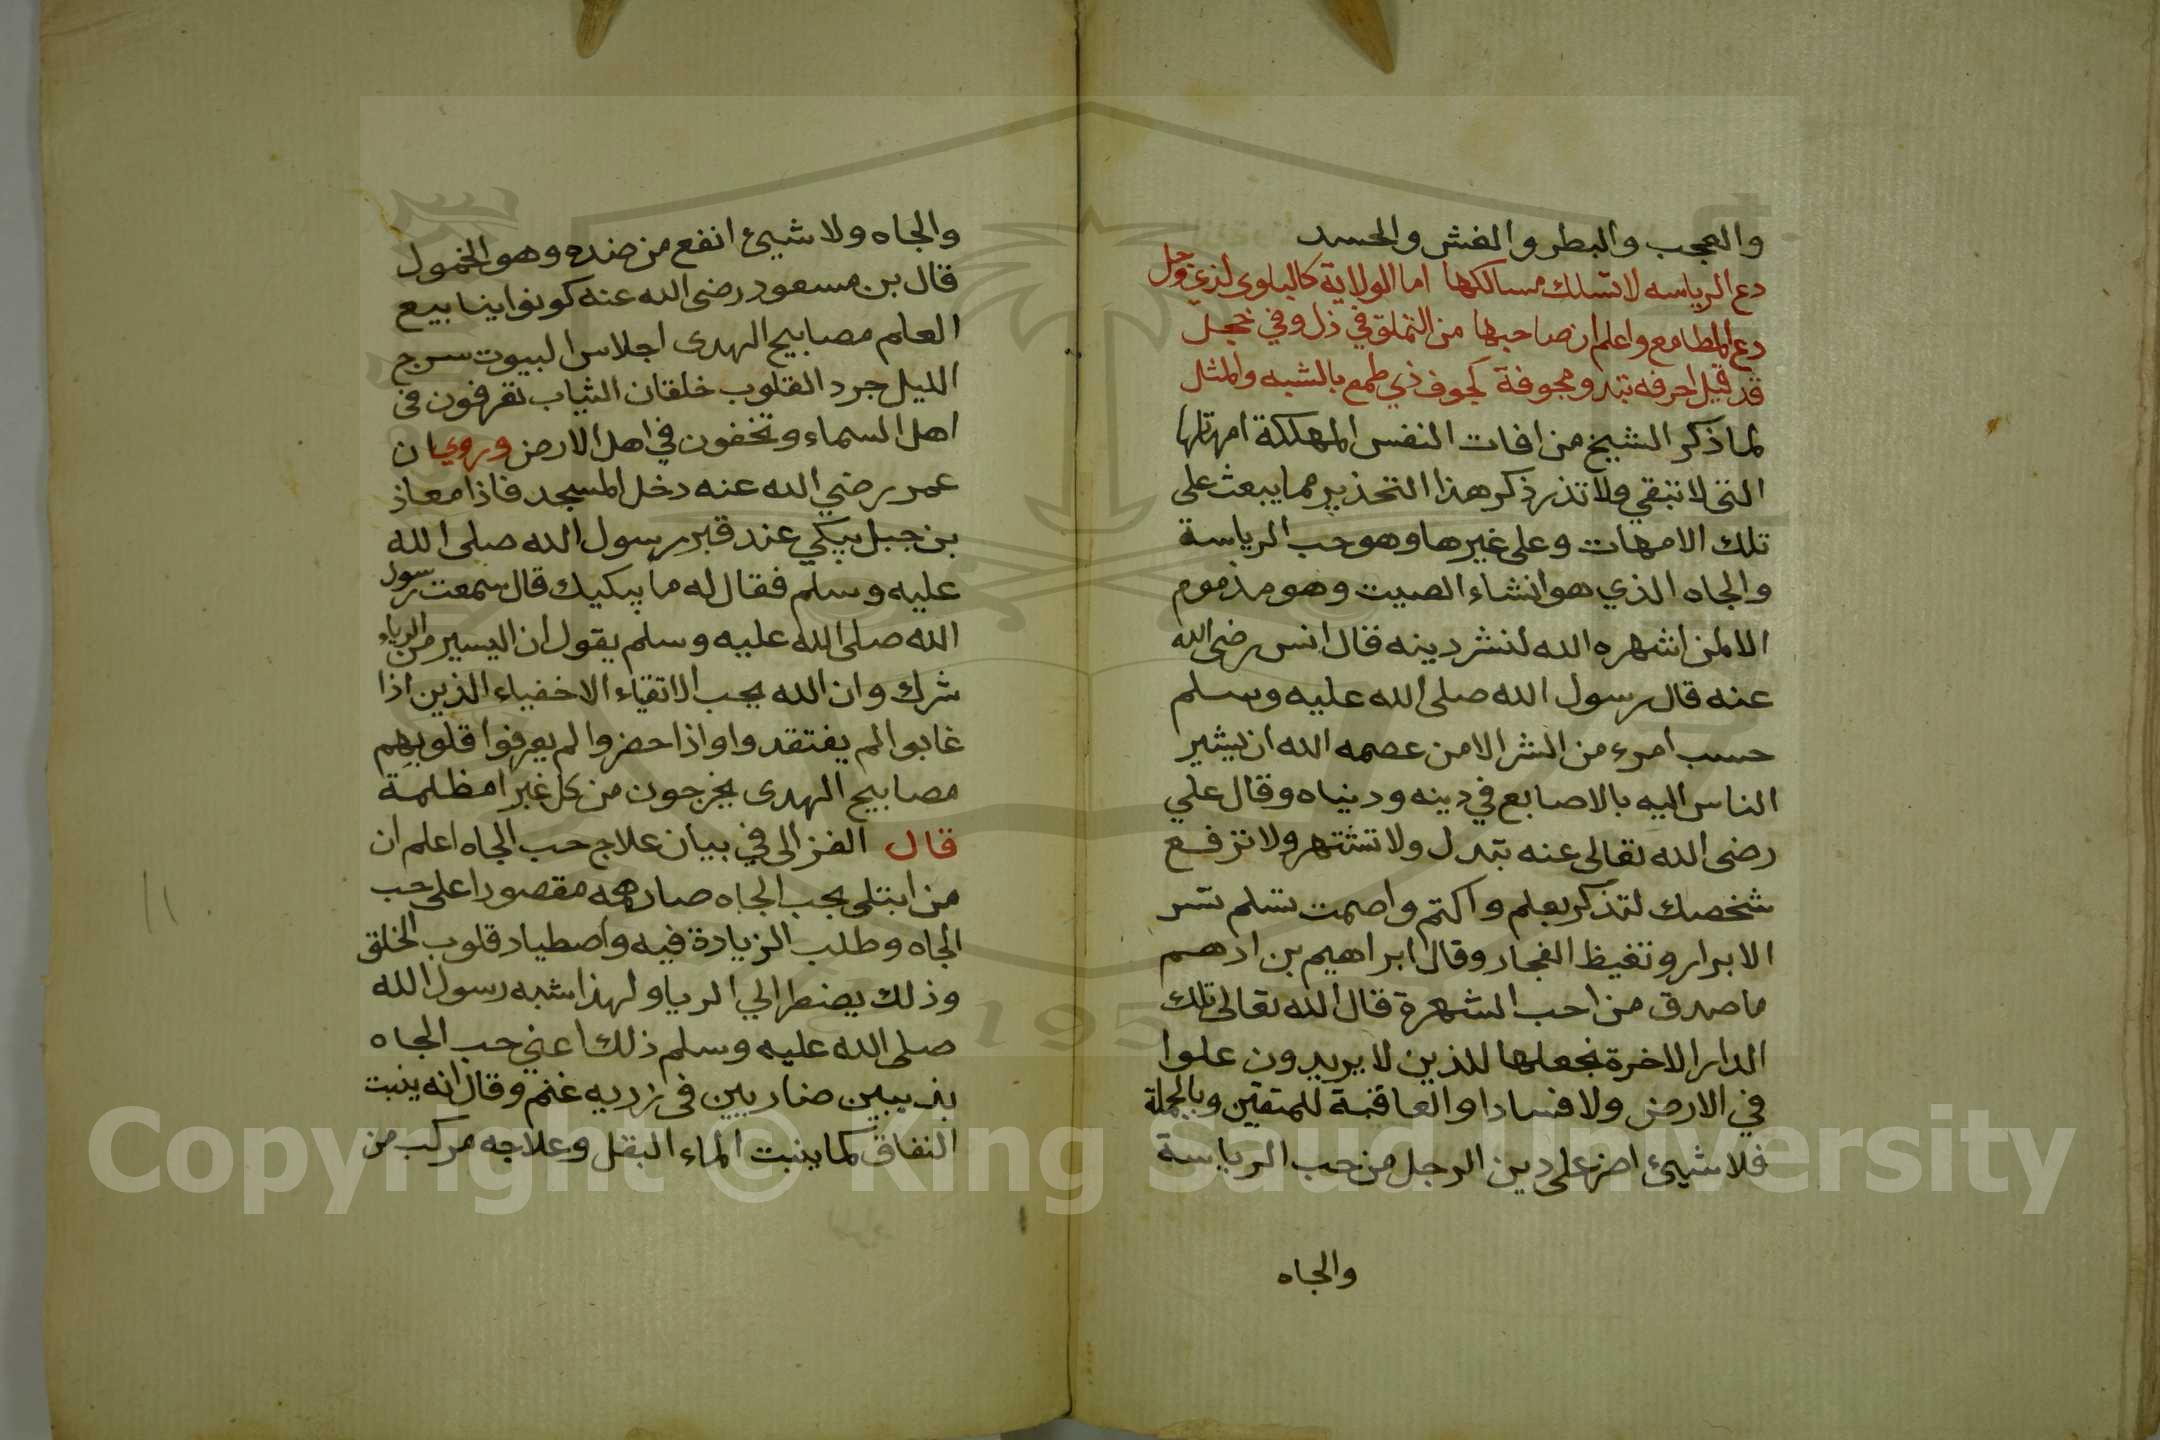 والعجب والبطر والغش والحسد
دع الرياسه لا تسلك مسالكها اما الولاية كالبلوى لذي وجل
دع المطامع واعلم ان صاحبها من التملق في ذل وفي خجل
قد قيل احرفه تبدو مجوفة كجوف ذي طمع بالشبه والمثل
لما ذكر الشيخ من افات النفس المهلكة امهاتها
التي لا تبقي ولا تذر ذكر هذا التحذير مما يبعث على
تلك الامهات وعلى غيرها وهو حب الرياسة
والجاه الذي هو انشاء الصيت وهو مذموم
الا لمن اشهره الله لنشر دينه قال انس رضى الله
عنه قال رسول الله صلى الله عليه وسلم
حسب امرء من الشر الا من عصمه الله ان يشير
الناس اليه بالاصابع في دينه ودنياه وقال علي
رضى الله تعالى عنه تبدل ولا تشتهر ولا ترفع
شخصك لتذكر بعلم واكتم واصمت تسلم تسر
الابرار وتغيظ الفجار وقال ابراهيم بن ادهم
ما صدق من احب الشهرة قال الله تعالى تلك
الدار الاخرة نجعلها للذين لا يريدون علوا
في الارض ولا فسادا والعاقبة للمتقين وبالجملة
فلا شيئ اضر على دين الرجل من حب الرياسة
والجاه
والجاه ولا شيئ انفع من ضده وهو الخمول
قال بن مسعود رضى الله عنه كونوا ينابيع
العلم مصابيح الهدى اجلاس البيوت سرج
الليل جرد القلوب خلقان الثياب تعرفون في
اهل السماء وتخفون في اهل الارض وروي ان
عمر رضي الله عنه دخل المسجد فاذا معاذ
بن جبل يبكي عند قبر رسول الله صلى الله
عليه وسلم فقال له ما يبكيك قال سمعت رسول
الله صلى الله عليه وسلم يقول ان اليسير من الرياء
شرك وان الله يحب الاتقياء الاخفياء الذين اذا
غابوا لم يفتقدوا واذا حضروا لم يعرفوا قلوبهم
مصابيح الهدى يخرجون من كل غبرا مظلمة
قال الغزالى في بيان علاج حب الجاه اعلم ان
من ابتلى بحب الجاه صار همه مقصورا على حب
الجاه وطلب الزيادة فيه واصطياد قلوب الخلق
وذلك يضطر الي الريا ولهذا شبه رسول الله
صلى الله عليه وسلم ذلك اعني حب الجاه
بذيبين ضاريين فى زريبه غنم وقال انه ينبت
النفاق كما ينبت الماء البقل وعلاجه مركب من
Copyright © King Saud University
195